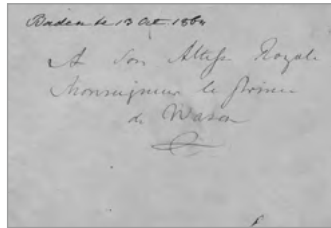 Baden le 13 Oct 1864
A Son Altesse Royale
Monseigneur le Prince
de Wasa